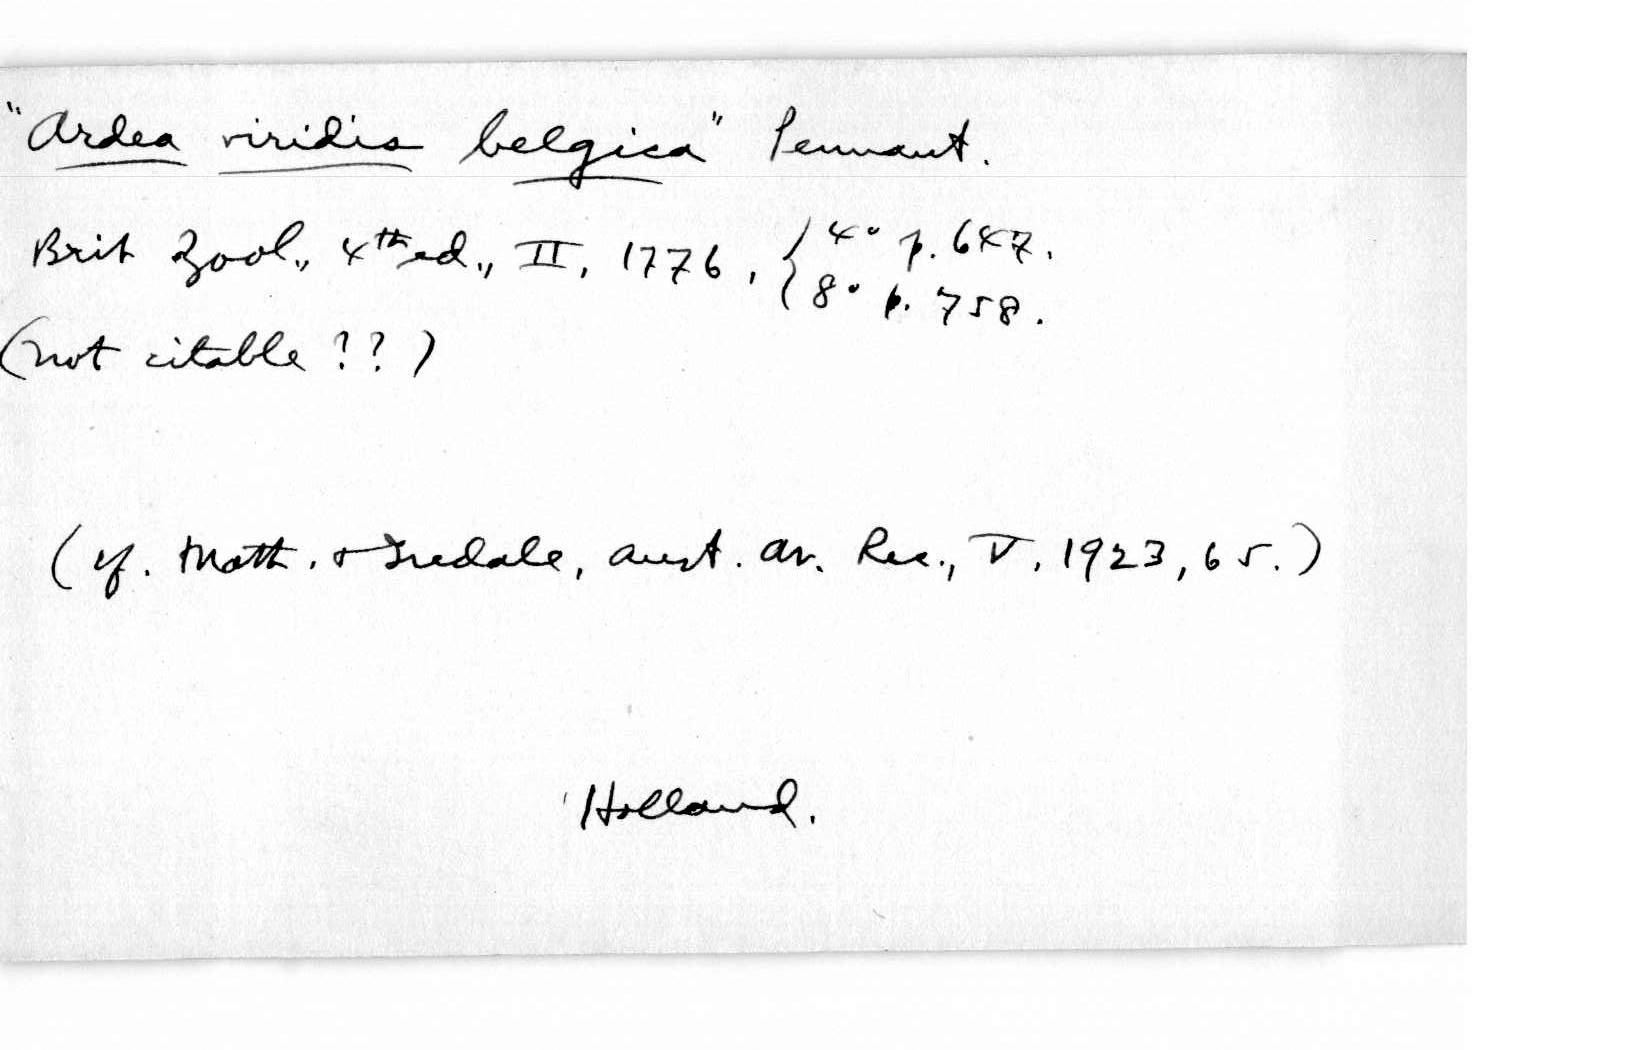 "Ardea viridis belgica" Pennant.
Brit Zool., 4th ed., II, 1776, { 4° p. 647.
8° p. 758.
(not citable ??)
(cf. Math. & Iredale, Aust. Av. Rec., V, 1923, 65.)
Holland.